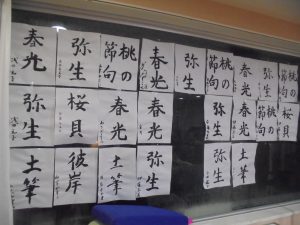 春光
弥生
桃の
節句
春光
弥生
桃の
節句
春光
弥生
桃の
節句
弥生
桜貝
春光
春光
弥生
春光
桃の
節句
桜貝
土筆
彼岸
土筆
弥生
弥生
土筆